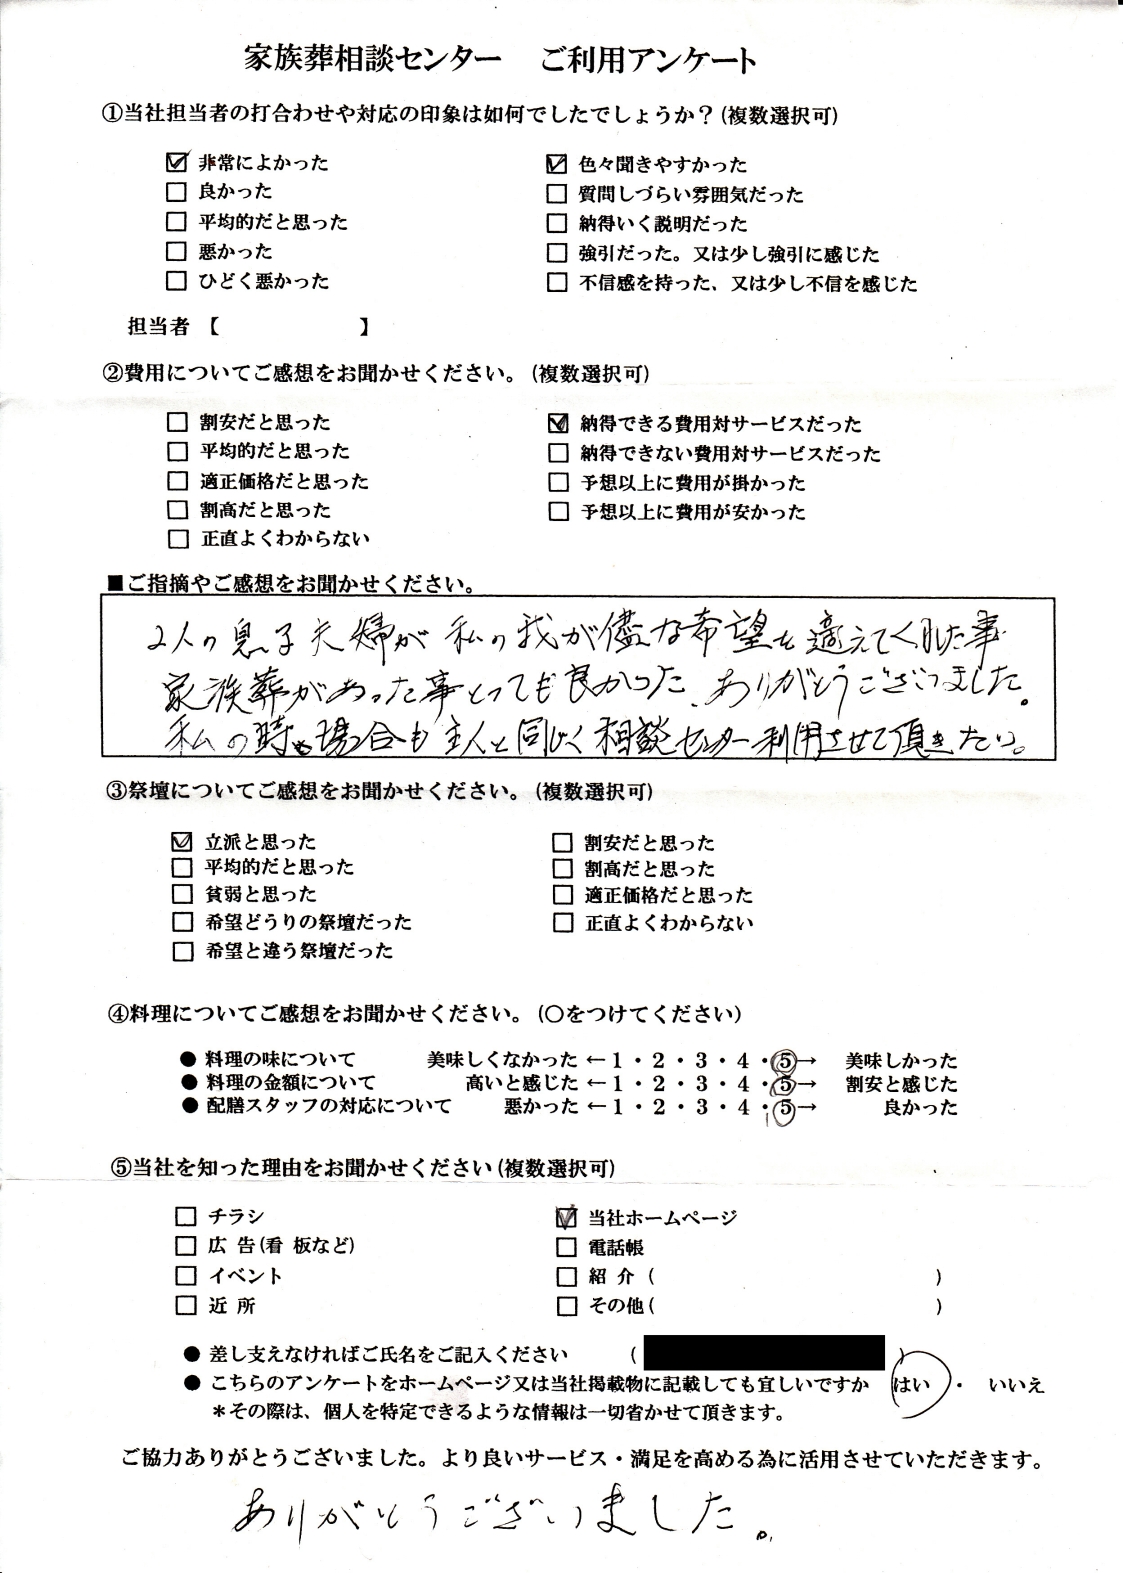 家族葬相談センター ご利用アンケート
①当社担当者の打合わせや対応の印象は如何でしたでしょうか？(複数選択可)
☑ 非常によかった ☑ 色々聞きやすかった
□ 良かった □ 質問しづらい雰囲気だった
□ 平均的だと思った □ 納得いく説明だった
□ 悪かった □ 強引だった。又は少し強引に感じた
□ ひどく悪かった □ 不信感を持った、又は少し不信を感じた
担当者 【 】
②費用についてご感想をお聞かせください。(複数選択可)
□ 割安だと思った ☑ 納得できる費用対サービスだった
□ 平均的だと思った □ 納得できない費用対サービスだった
□ 適正価格だと思った □ 予想以上に費用が掛かった
□ 割高だと思った □ 予想以上に費用が安かった
□ 正直よくわからない
■ご指摘やご感想をお聞かせください。
2人の息子夫婦が私の我が儘な希望を適えてくれた事
家族葬があった事とっても良かった、ありがとうございました。
私の時も場合も主人と同じく相談センター利用させて頂きたい。
③祭壇についてご感想をお聞かせください。(複数選択可)
☑ 立派と思った □ 割安だと思った
□ 平均的だと思った □ 割高だと思った
□ 貧弱と思った □ 適正価格だと思った
□ 希望どうりの祭壇だった □ 正直よくわからない
□ 希望と違う祭壇だった
④料理についてご感想をお聞かせください。(○をつけてください)
● 料理の味について 美味しくなかった ←1・2・3・4・5→ 美味しかった
● 料理の金額について 高いと感じた ←1・2・3・4・5→ 割安と感じた
● 配膳スタッフの対応について 悪かった ←1・2・3・4・5→ 良かった
⑤当社を知った理由をお聞かせください(複数選択可)
□ チラシ ☑ 当社ホームページ
□ 広 告(看 板など) □ 電話帳
□ イベント □ 紹 介 ( )
□ 近 所 □ その他( )
● 差し支えなければご氏名をご記入ください ( )
● こちらのアンケートをホームページ又は当社掲載物に記載しても宜しいですか はい ・ いいえ
＊その際は、個人を特定できるような情報は一切省かせて頂きます。
ご協力ありがとうございました。より良いサービス・満足を高める為に活用させていただきます。
ありがとうございました。